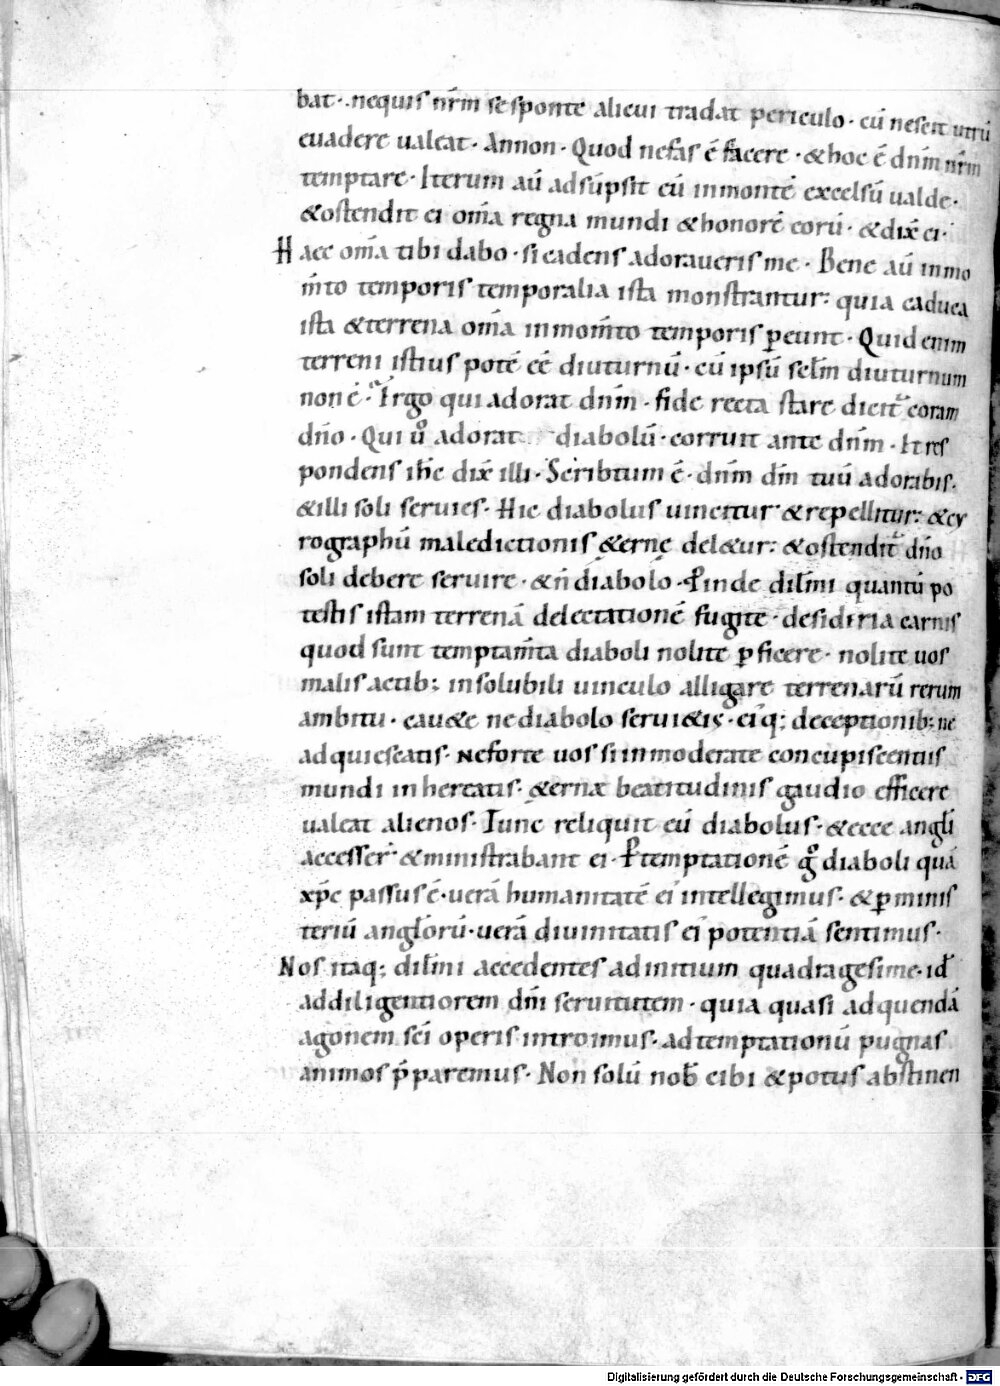 bat · nequis nr̄m se sponte alicui tradat periculo · cū nescit utrū
euadere ualeat · Annon · Quod nefas ē facere · &hoc ē dn̄m nr̄m
temptare · Iterum aū adsūpsit eū inmontē excelsū ualde ·
&ostendit ei om̄a regna mundi &honorē eorū · &dix̄ ei ·
Haec om̄a tibi dabo · si cadens adoraueris me · Bene aū inmo
m̄to temporis temporalia ista monstrantur : quia caduca
ista &terrena om̄a inmom̄to temporis p̲eunt · Quid enim
terreni istius potē eē diuturnū · cū ipsū sclm̄ diuturnum
non ē · Ergo qui adorat dn̄m · fide recta stare dicit᷑ coram
dn̄o · Qui u͛o adorat diabolū · corruit ante dn̄m · Et res
pondens ih̄c dix̄ illi · Scribtum ē · dn̄m dm̄ tuū adorabis ·
&illi soli seruies · Hic diabolus uincitur &repellitur : &cy
rographū maledictionis &ernę del&ur : &ostendit᷑ dn̄o
soli debere seruire · &n̄ diabolo · Proinde dilm̄i quantū po
testis istam terrenā delectationē fugite · desidiria carnis
quod sunt temptam̄ta diaboli nolite p̲ficere · nolite uos
malis actib; insolubili uinculo alligare terrenarū rerum
ambitu · cau&e ne diabolo serui&is · eiꝰq; deceptionib; ne
adquiescatis · Neforte uos si inmoderate concupiscentiis
mundi inhereatis · &ernæ beatitudinis gaudio efficere
ualeat alienos · Tunc reliquit eū diabolus · &ecce angl̄i
accesser̄ &ministrabant ei · P̲ temptationē g͛o diaboli quā
xp̄c passus ē · uerā humanitatē eiꝰ intellegimus · &p̲ minis
teriū anglorū · uerā diuinitatis eiꝰ potentiā sentimus ·
Nos itaq; dilm̄i accedentes ad initium quadragesime · id᷑
ad diligentiorem dn̄i seruitutem · quia quasi ad quendā
agonem sc̄i operis introimus · ad temptationū pugnas
animos p̄paremus · Non solū nob̄ cibi &potus abstinen
Digitalisierung gefördert durch die Deutsche Forschungsgemeinschaft - DFG